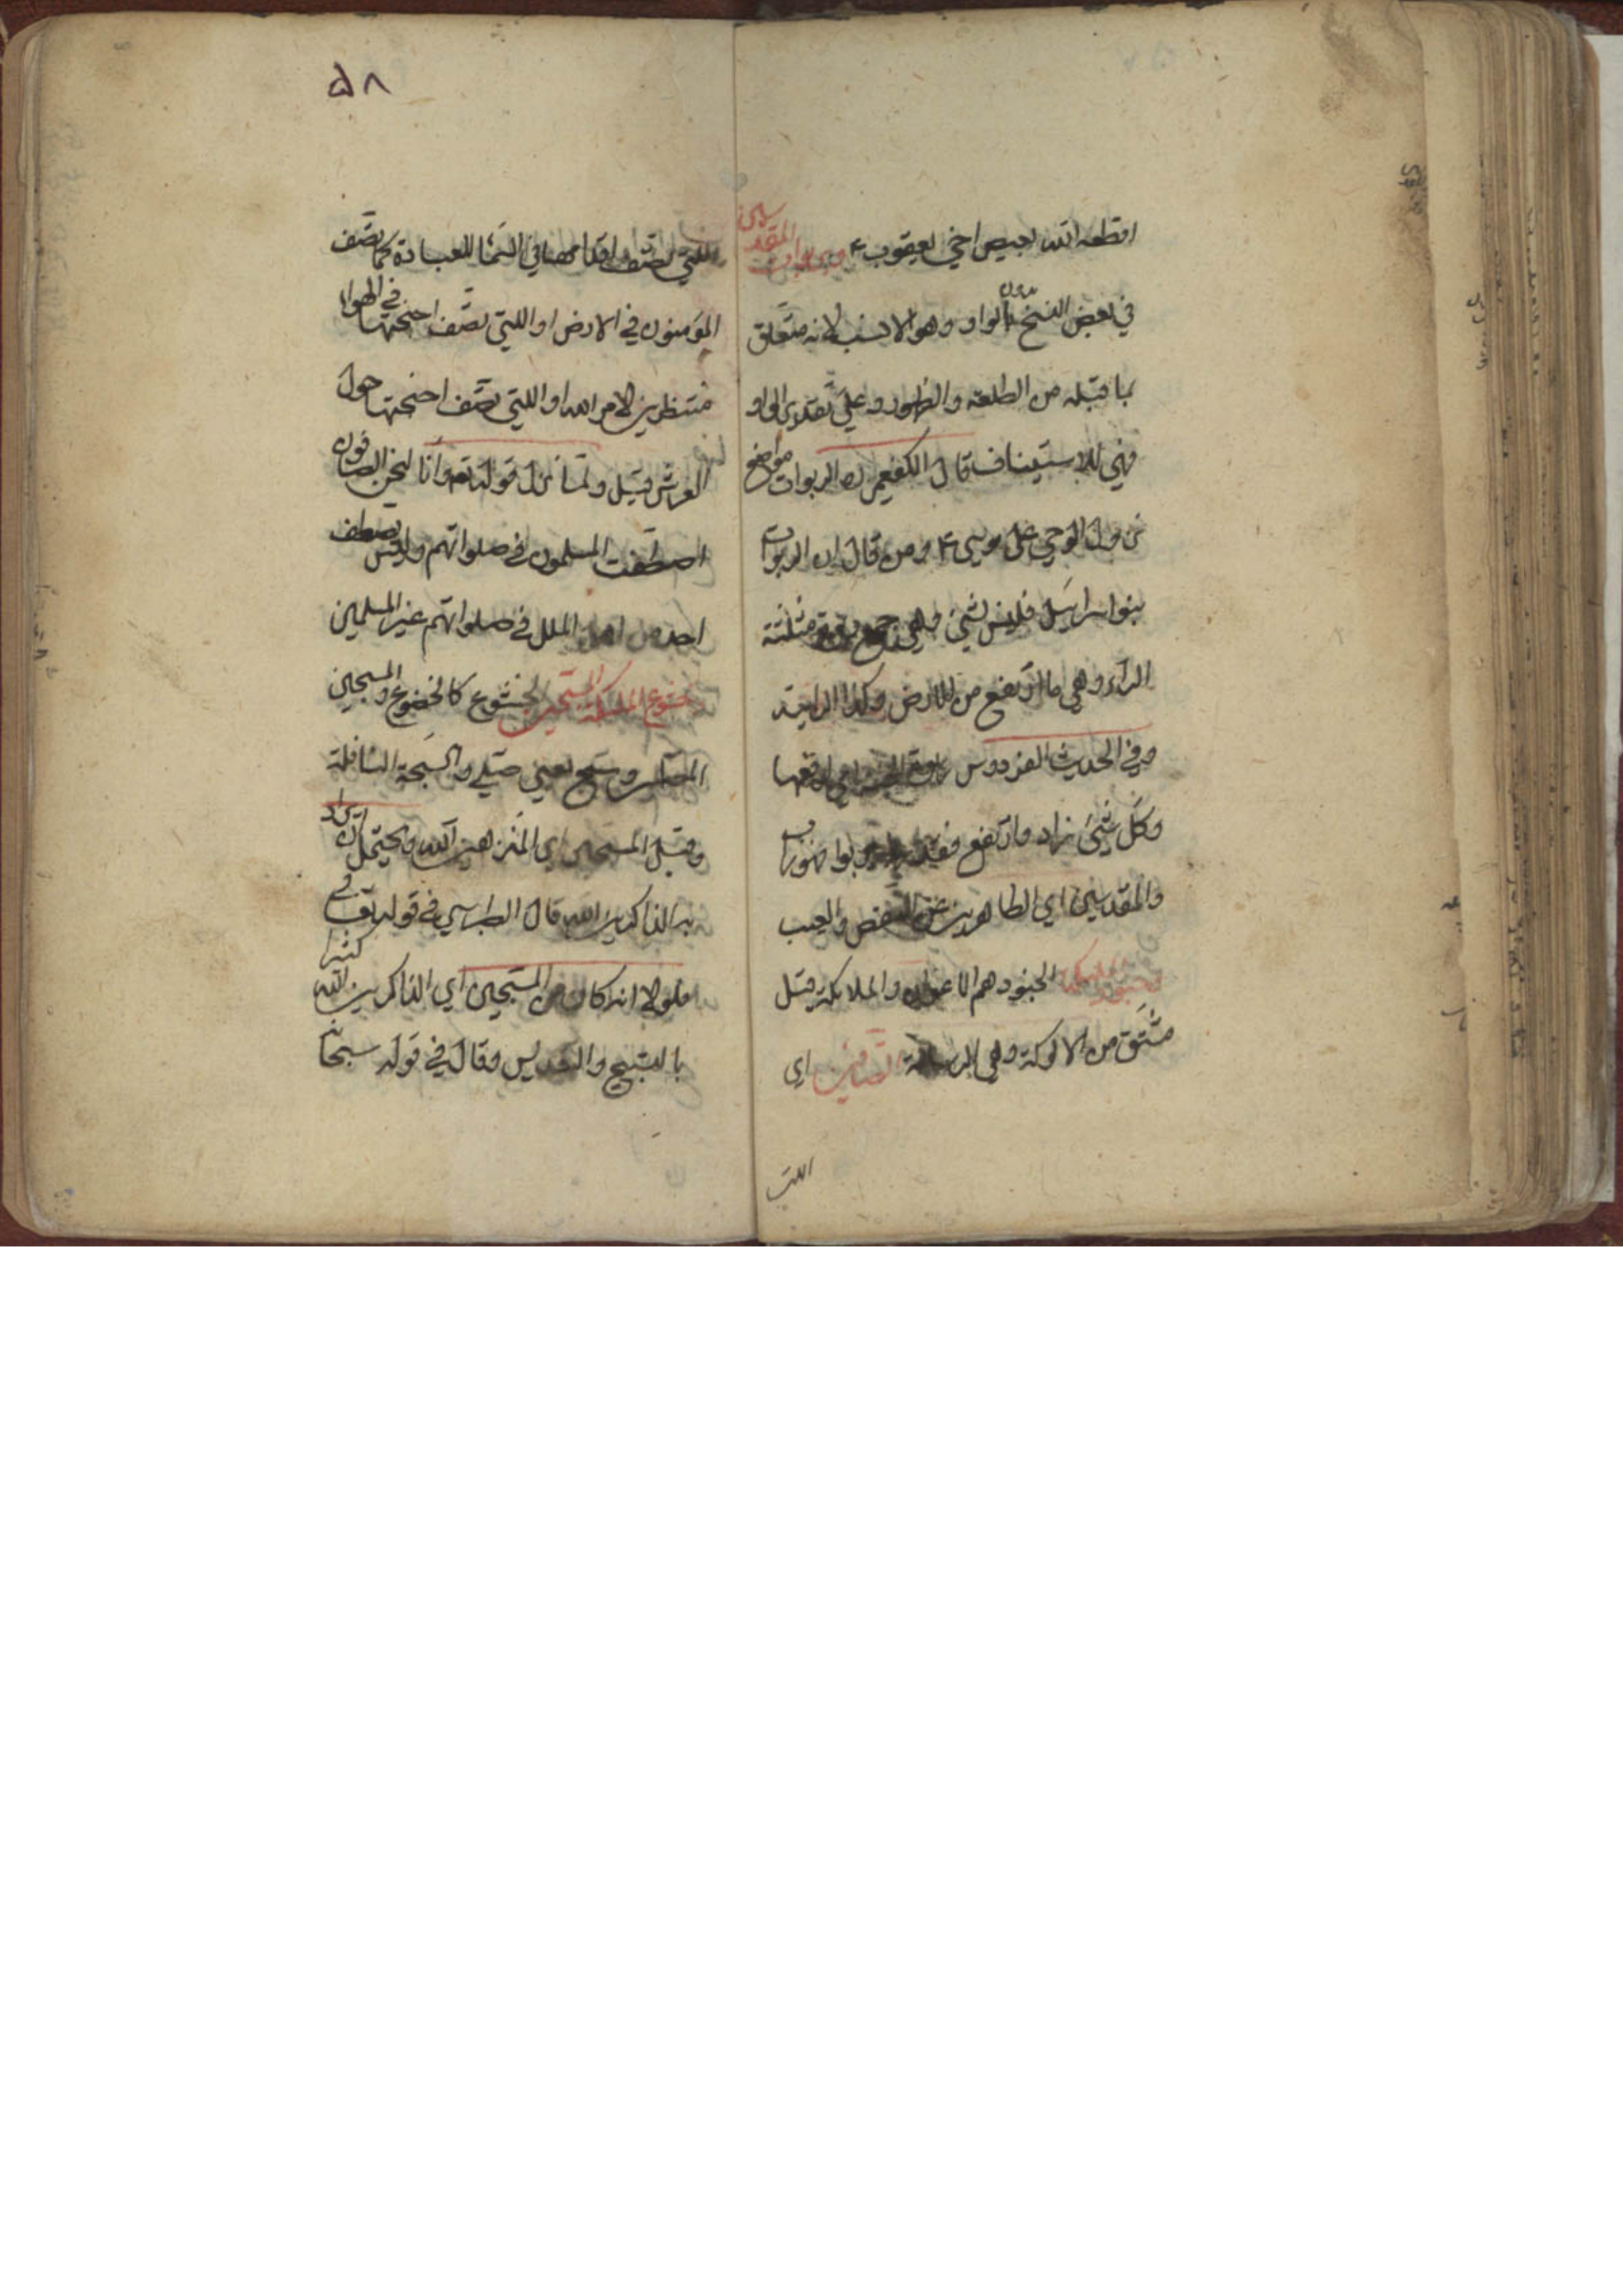 اقطعه الله لعيص اخي يعقوب ع وربوات المقدسين
في بعض النسخ بدون الواو وهو الانسب لانه متعلق
بما قبله من الطلعة والظهور وعلى تقدير الواو
فهي للاستيناف قال الكفعمي ره الربوات مواضع
نزول الوحي على موسى ع ومن قال ان الربوات
بنو اسرايل فليس بشيء وهي جمع ربوة مثلثة
الراء وهي ما ارتفع من الارض وكذا الرابية
وفي الحديث الفردوس ربوة الجنة اي ارفعها
وكل شيء زاد وارتفع فقد ربا يربوا فهو راب
والمقدسين اي الطاهرين عن النقص والعيب
وجنود الملئكة الجنود هم الاعوان والملائكة قيل
مشتق من الالوكة وهي الرسالة الصافين اي
اللتي
٥٨
اللتي تصف اقدامها في السماء للعبادة كما تصف
المؤمنون في الارض او اللتي تصف اجنحتها في الهواء
منتظرين لامر الله او اللتي تصف اجنحتها حول
العرش قيل ولما نزل قوله تع وانا لنحن الصافون
اصطفت المسلمون في صلواتهم وليس يصطف
احد من اهل الملل في صلواتهم غير المسلمين
وخشوع الملئكة المسبحين الخشوع كالخضوع والمسبحين
المصلين وسبح يعني صلى والسبحة النافلة
وقيل المسبحين اي المنزهين الله ويحتمل ان يراد
به الذاكرين الله قال الطبرسي في قوله تعالى
فلولا انه كان من المسبحين اي الذاكرين الله كثيرا
بالتسبيح والتقديس وقال في قوله سبحانه